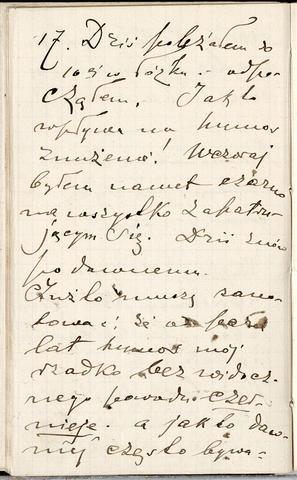 17. Dziś poleżałem do
10 i ½ w łóżku – odpo-
cząłem. Jak to
wpływa na humor
znużenie! Wczoraj
byłem nawet czarno
na wszystko zapatru-
jącym się. Dziś znów
po dawnemu.
muszę zano-
tować, że od
lat humor mój
rzadko bez widocz-
nego powodu czer-
nieje. a jak to daw-
niéj często bywa-